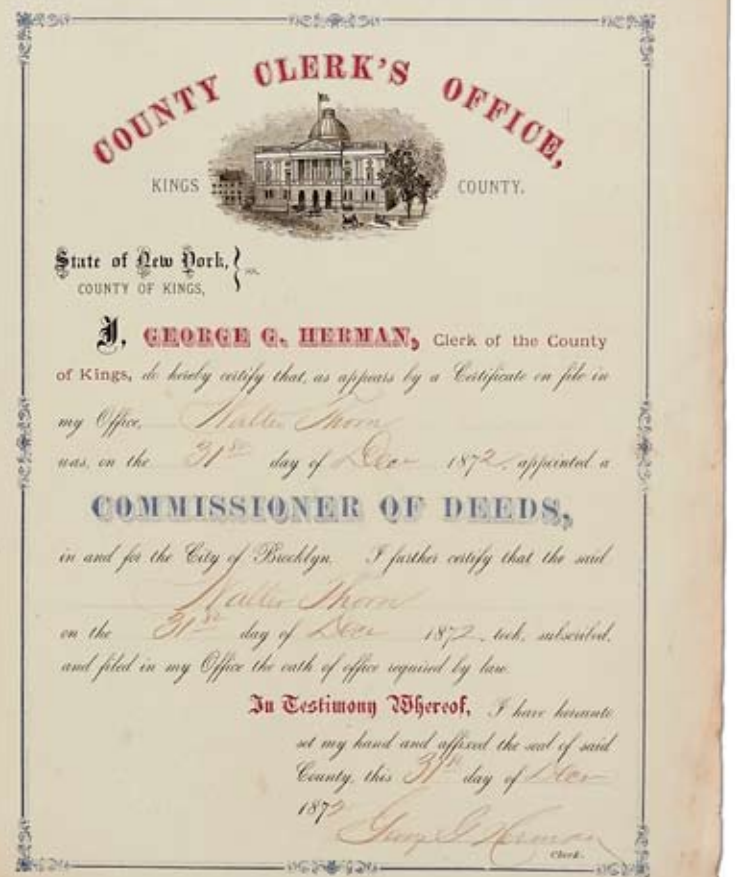 COUNTY CLERK'S OFFICE,
KINGS COUNTY.
State of New York, } ss.
COUNTY OF KINGS,
I, GEORGE G. HERMAN, Clerk of the County
of Kings, do hereby certify that, as appears by a Certificate on file in
my Office, Walter Thorn
was, on the 31st day of Dec 1872, appointed a
COMMISSIONER OF DEEDS,
in and for the City of Brooklyn. I further certify that the said
Walter Thorn
on the 31st day of Dec 1872, took, subscribed,
and filed in my Office the oath of office required by law.
In Testimony Whereof, I have hereunto
set my hand and affixed the seal of said
County, this 31st day of Dec
1872
George G. Herman
Clerk.